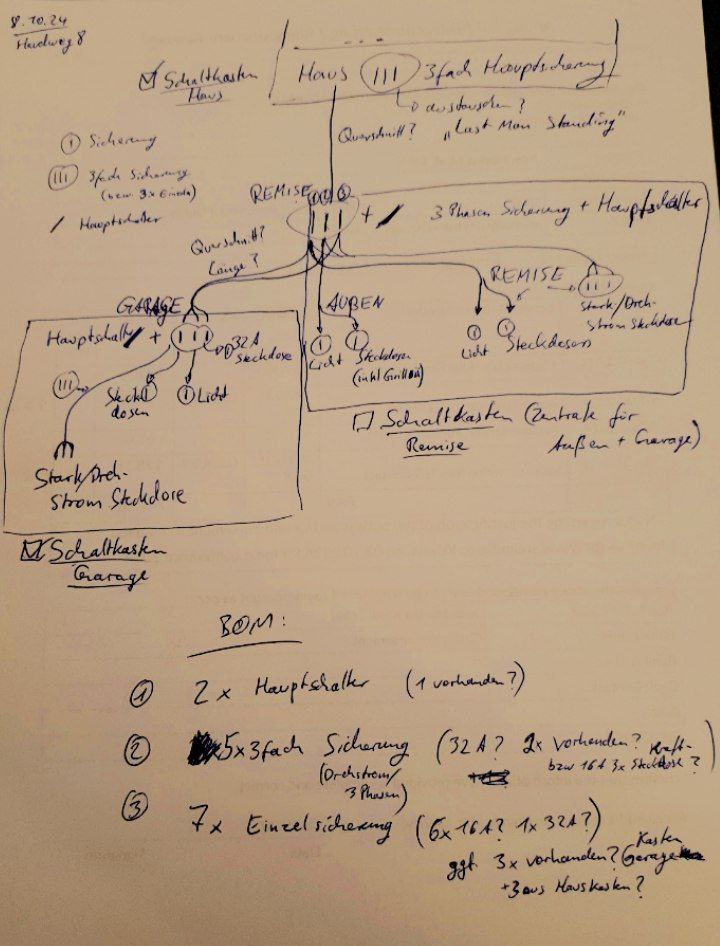 8.10.24
Haus III 3fach Hauptsicherung
☑ Schaltkasten
Haus
austauschen?
Querschnitt? „Last Man Standing"
I Sicherung
III 3fach Sicherung
(bzw. 3x Einzeln)
/ Hauptschalter
REMISE 1 2 3 + / 3 Phasen Sicherung + Hauptschalter
Querschnitt?
Länge?
REMISE
III
Stark/Dreh-
Strom Steckdose
AUßEN
I Licht
I Steckdosen
(inkl Grillen)
I Licht
I Steckdosen
GARAGE
Hauptschalter + III
32A
Steckdose
III
Steck
dosen I
I Licht
Stark/Dreh-
Strom Steckdose
☐ Schaltkasten (Zentrale für
Remise Außen + Garage)
☑ Schaltkasten
Garage
BOM:
1 2x Hauptschalter (1 vorhanden?)
2 5x3fach Sicherung (32A? 2x vorhanden? Kraft-
(Drehstrom/ bzw 16A 3x Steckdose?)
3 Phasen)
3 7x Einzelsicherung (6x16A? 1x32A?)
ggf 3x vorhanden? Kasten
Garage
+3 aus Hauskasten?